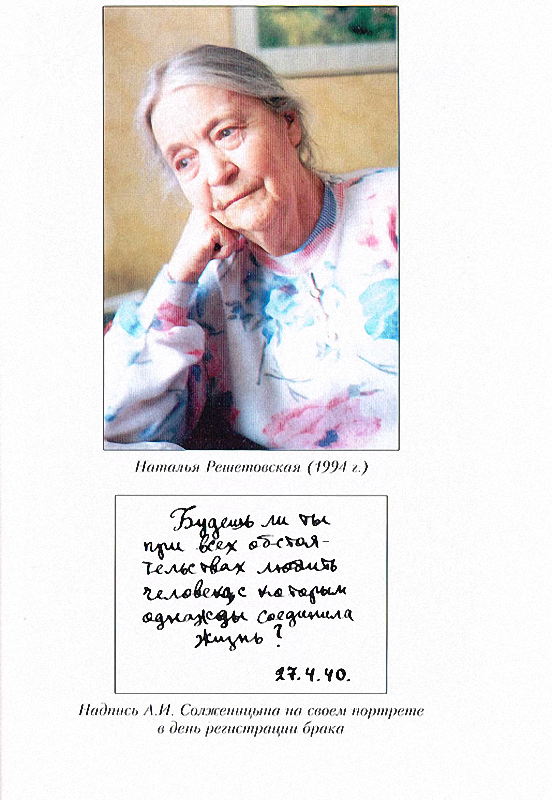 Наталья Решетовская (1994 г.)
Будешь ли ты
при всех обстоя-
тельствах любить
человека, с которым
однажды соединила
жизнь?
27.4.40.
Надпись А.И. Солженицына на своем портрете
в день регистрации брака